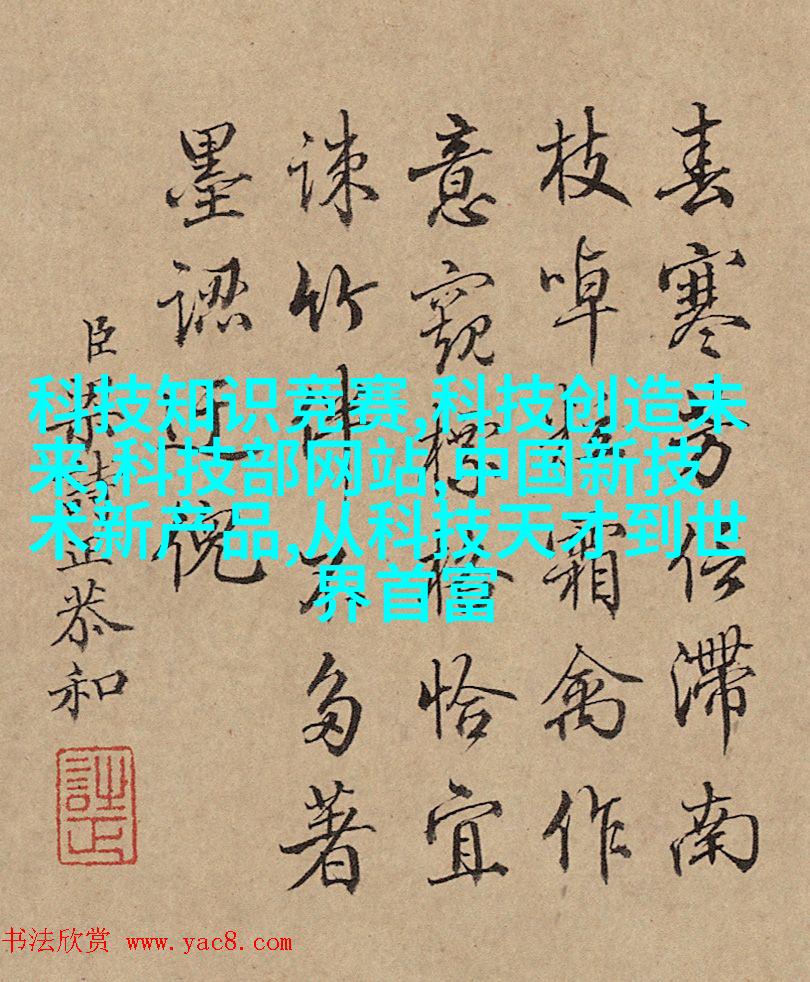 春寒芳信滯南
枝啅霜禽作
意窺標格恰宜
疎竹伴不多著
墨認迂倪
臣梁詩正恭和
科技知识竞赛,科技创造未
来,科技部网站,中国新技
术新产品,从科技天才到世
界首富
书法欣赏 www.yac8.com